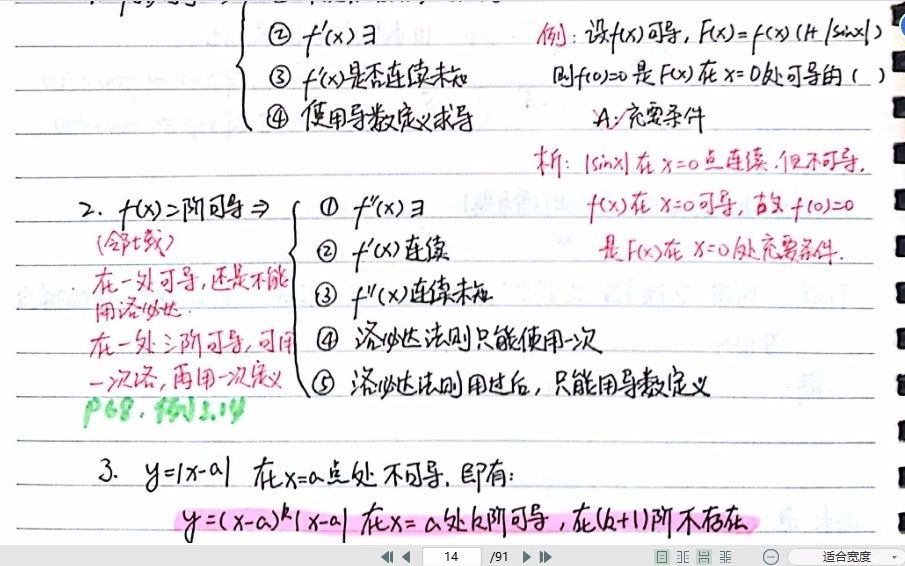 ② f'(x)∃
③ f'(x)是否连续未知
④ 使用导数定义求导
例: 设f(x)可导, F(x)=f(x)(1+|sinx|)
则f(0)=0 是F(x)在x=0处可导的( )
A. 充要条件
析: |sinx|在x=0点连续, 但不可导,
f(x)在x=0可导, 故f(0)=0
是F(x)在x=0处充要条件.
2. f(x)二阶可导⇒
(邻域)
在一处可导, 还是不能
用洛必达.
在一处二阶可导, 可用
一次洛, 再用一次定义
P68. 例2.14
① f''(x)∃
② f'(x)连续
③ f''(x)连续未知
④ 洛必达法则只能使用一次
⑤ 洛必达法则用过后, 只能用导数定义
3. y=|x-a| 在x=a点处不可导, 即有:
y=(x-a)^k|x-a| 在x=a处k阶可导, 在(k+1)阶不存在
14 /91 适合宽度